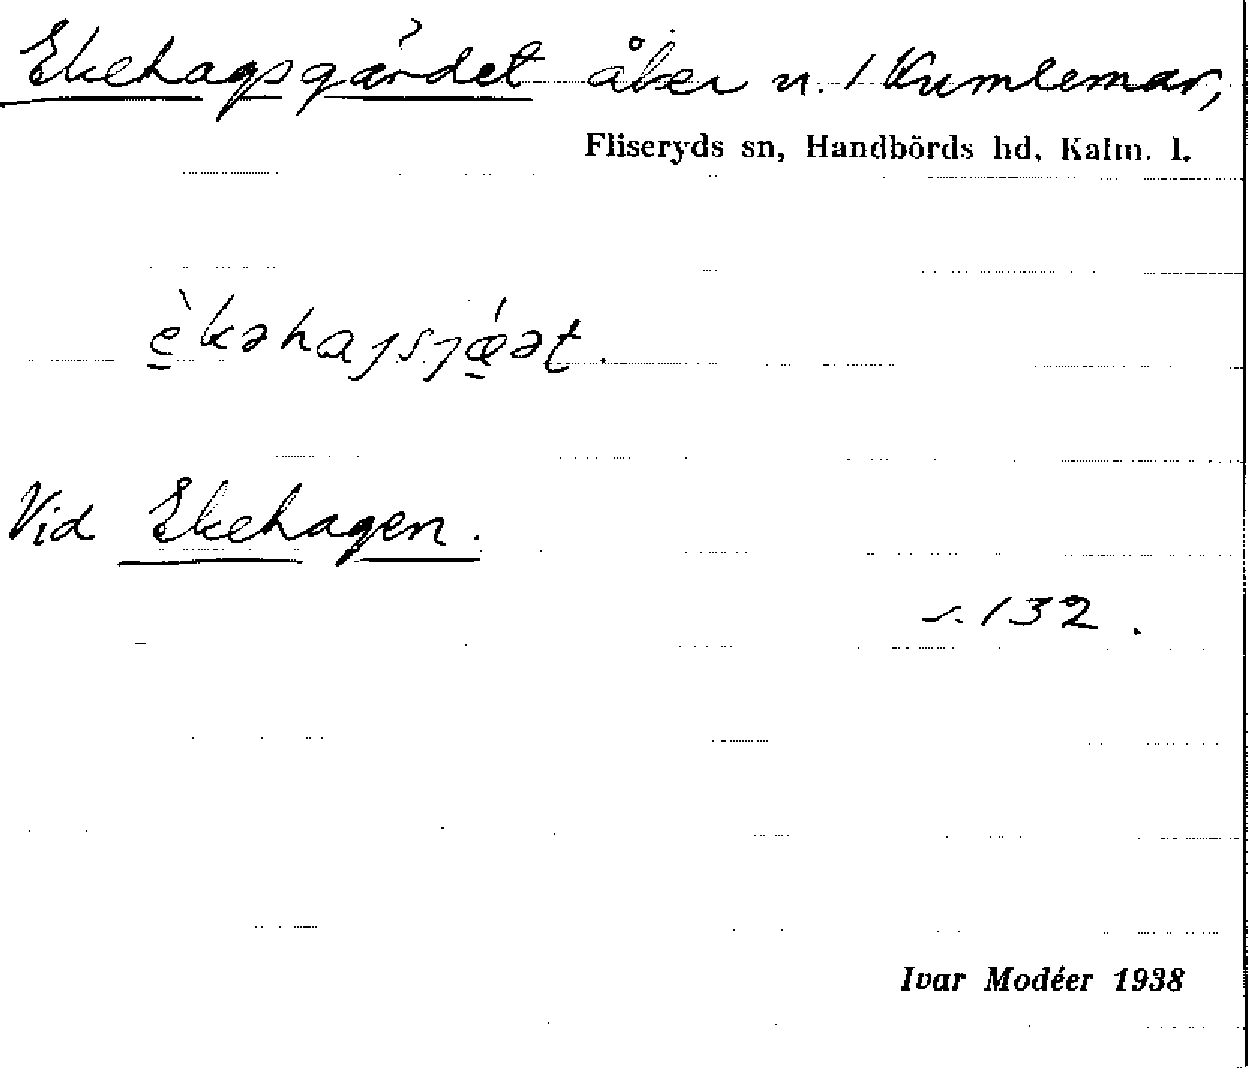 Ekehagsgärdet åker n. 1 Kumlemar,
Fliseryds sn, Handbörds hd, Kalm. l.
è̱kəhaɡsjǽ̱ət.
Vid Ekehagen.
s. 132.
Ivar Modéer 1938